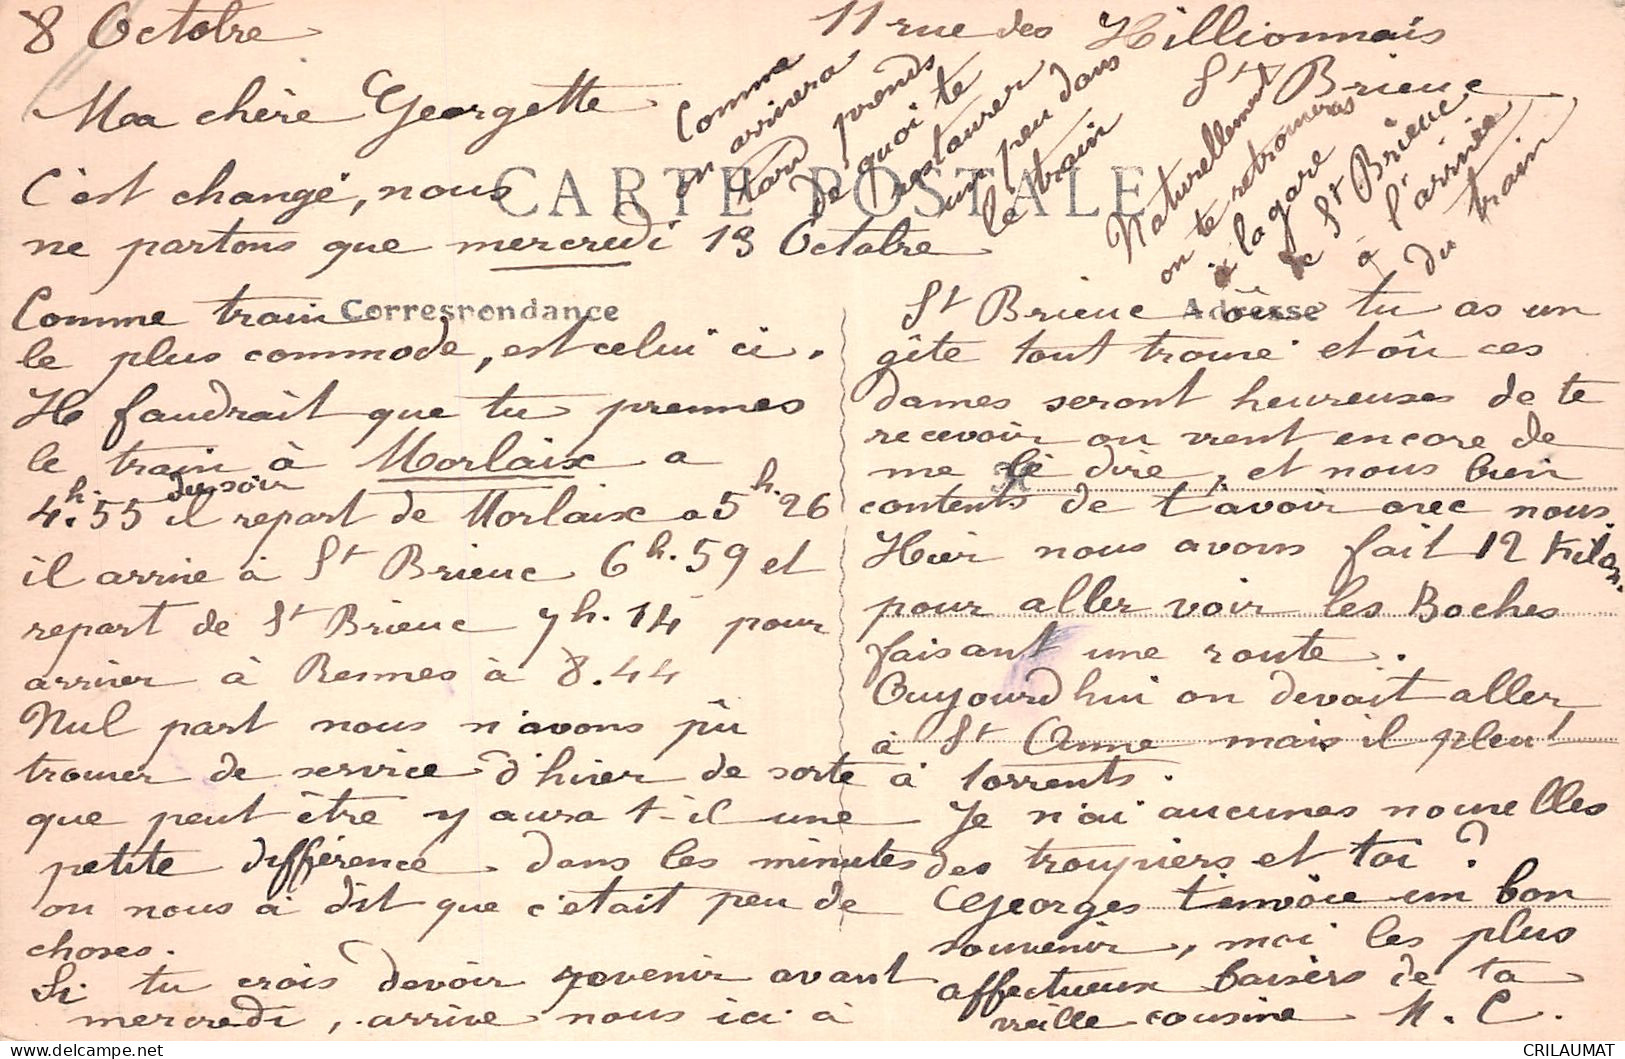 8 Octobre
11 rue des Hillionnais
St Brieuc
Ma chère Georgette
C'est changé, nous
ne partons que mercredi 13 Octobre
CARTE POSTALE
Comme
on arrivera
tard prends
de quoi te
restaurer
un peu dans
le train
Naturellement
on te retrouveras
à la gare
de St Brieuc
à l'arrivée
du train
Correspondance
Comme train
le plus commode, est celui ci.
Il faudrait que tu prennes
le train à Morlaix a
4h.55 du soir il repart de Morlaix a 5h.26
il arrive à St Brieuc 6h.59 et
repart de St Brieuc 7h.14 pour
arriver à Rennes à 8.44
Nul part nous n'avons pû
trouver de service d'hiver de sorte
que peut être y aura t-il une
petite différence dans les minutes
on nous a dit que c'était peu de
choses.
Si tu crois devoir venir avant
mercredi, arrive nous ici à
Adresse
St Brieuc où tu as un
gîte tout trouvé et où ces
dames seront heureuses de te
recevoir on vient encore de
me le dire, et nous bien
contents de t'avoir avec nous.
Hier nous avons fait 12 kilom.
pour aller voir les Boches
faisant une route.
Aujourd'hui on devait aller
à St Anne mais il pleut
à torrents.
Je n'ai aucunes nouvelles
des troupiers et toi ?
Georges t'envoie un bon
souvenir, moi les plus
affectueux baisers de ta
vieille cousine M. C.
CRILAUMAT